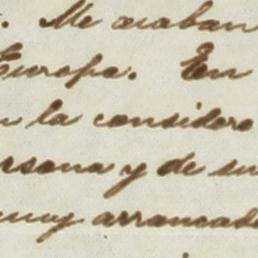 . Me acaban
Europa. En
n la considero
rsona y de su
muy arrancada